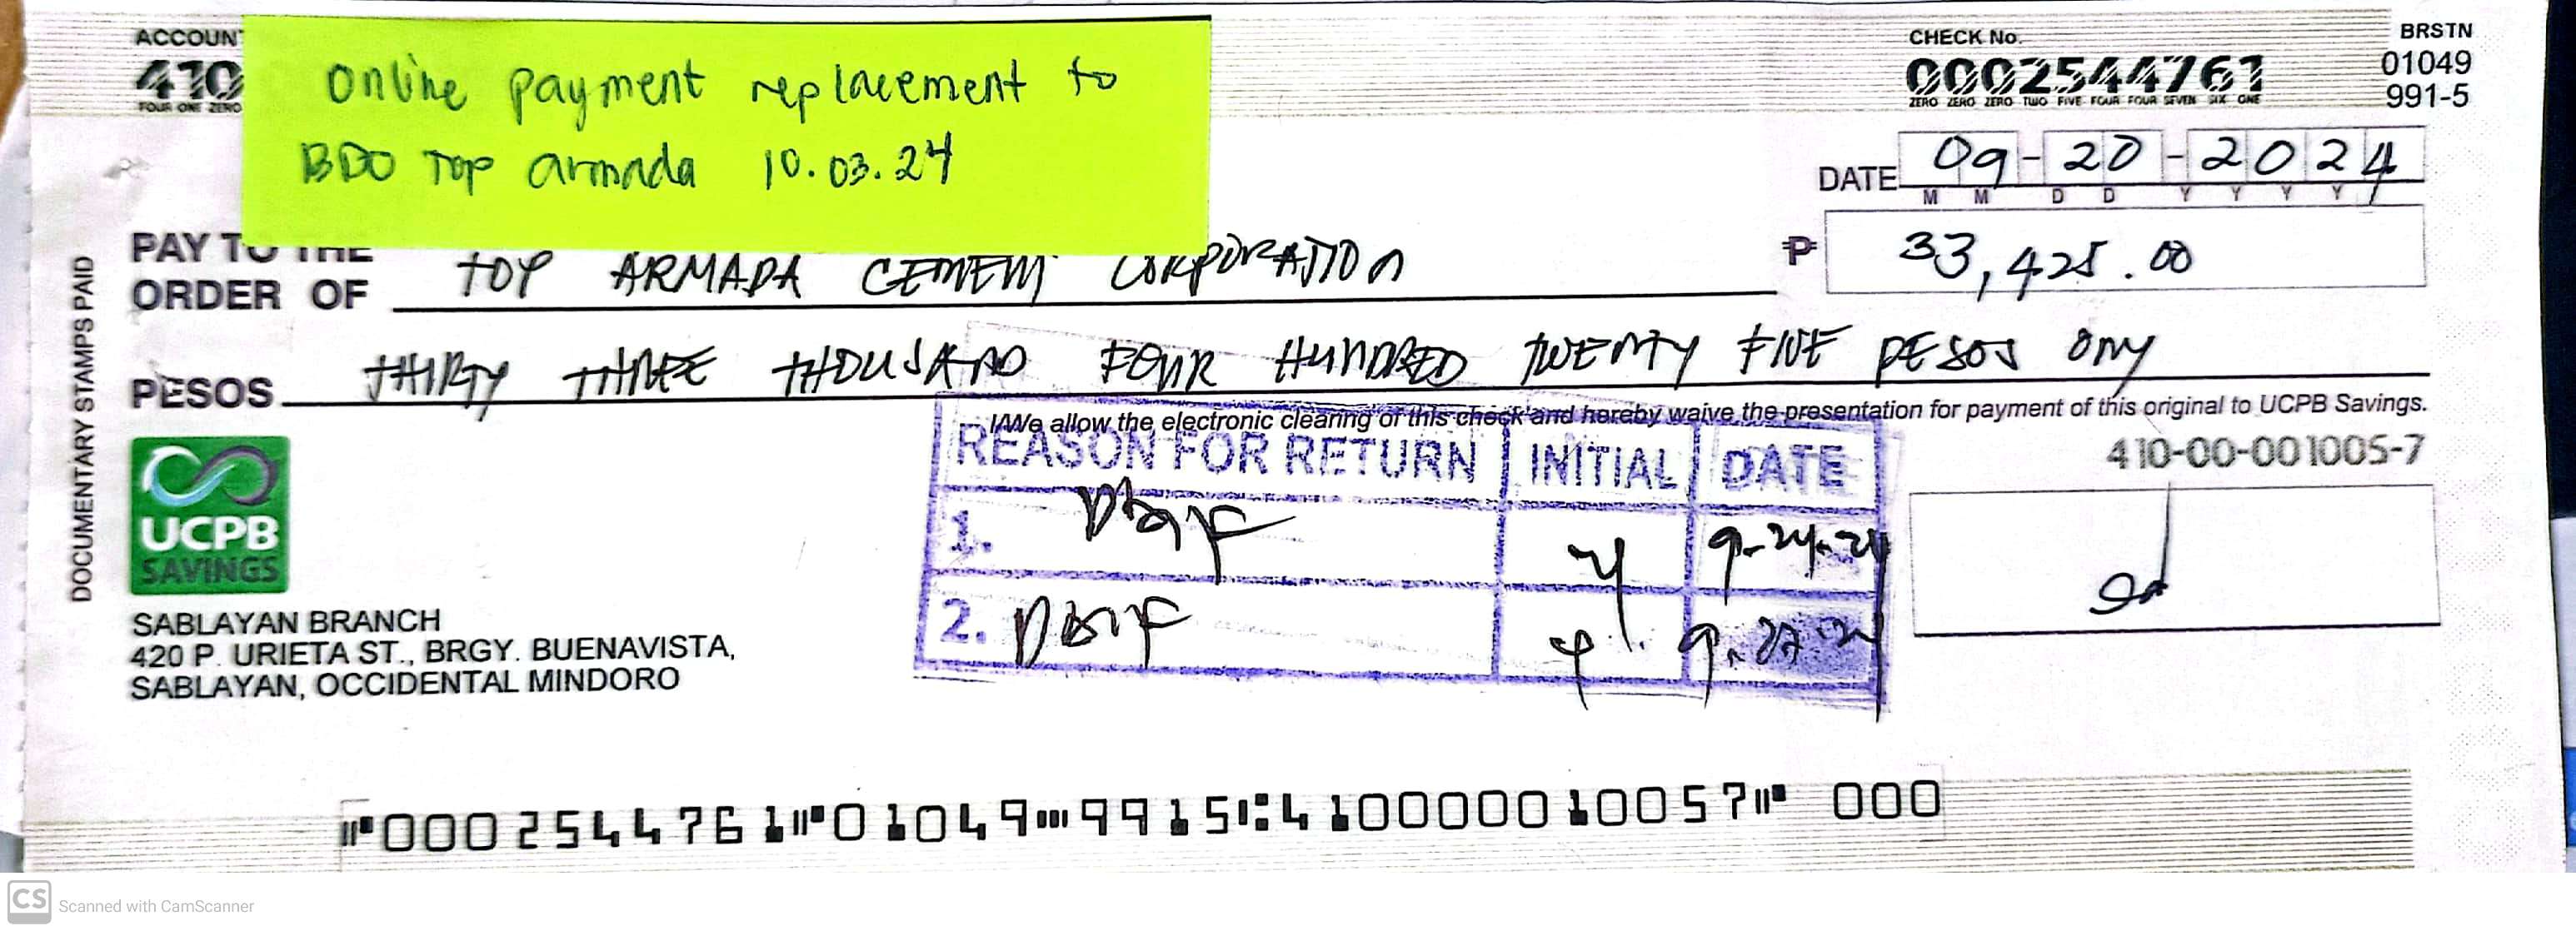 ACCOUNT
410
FOUR ONE ZERO
Online payment replacement to
BDO Top armada 10.03.24
CHECK No.
0002544761
ZERO ZERO ZERO TWO FIVE FOUR FOUR SEVEN SIX ONE
BRSTN
01049
991-5
DATE 09-20-2024
M M D D Y Y Y Y
PAY TO THE
ORDER OF TOP ARMADA CEMENT CORPORATION
₱ 33,425.00
PESOS THIRTY THREE THOUSAND FOUR HUNDRED TWENTY FIVE PESOS ONY
I/We allow the electronic clearing of this check and hereby waive the presentation for payment of this original to UCPB Savings.
410-00-001005-7
DOCUMENTARY STAMPS PAID
UCPB
SAVINGS
SABLAYAN BRANCH
420 P. URIETA ST., BRGY. BUENAVISTA,
SABLAYAN, OCCIDENTAL MINDORO
REASON FOR RETURN INITIAL DATE
1. DAIF 9-24-24
2. DAIF 9.27.24
⑈0002544761⑈01049⑉9915⑆410000010057⑈ 000
CS Scanned with CamScanner